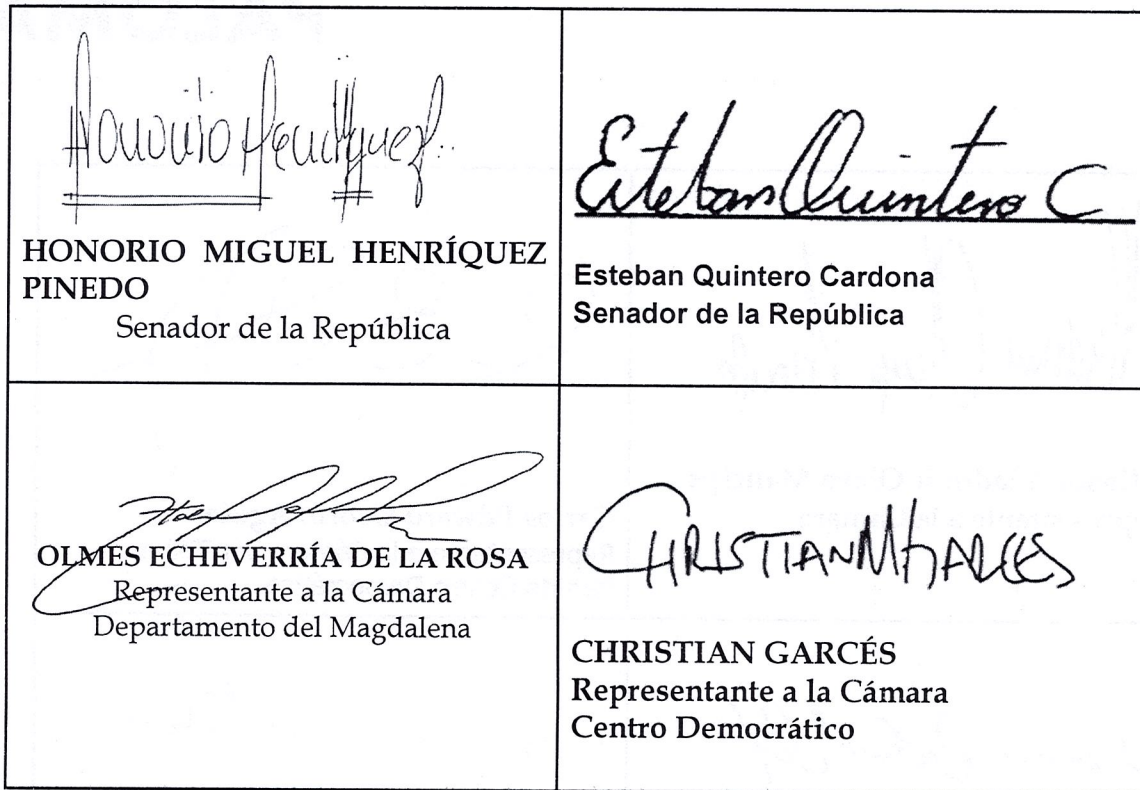 Honorio Henríquez
HONORIO MIGUEL HENRÍQUEZ
PINEDO
Senador de la República
Esteban Quintero C
Esteban Quintero Cardona
Senador de la República
OLMES ECHEVERRÍA DE LA ROSA
Representante a la Cámara
Departamento del Magdalena
CHRISTIAN M GARCES
CHRISTIAN GARCÉS
Representante a la Cámara
Centro Democrático